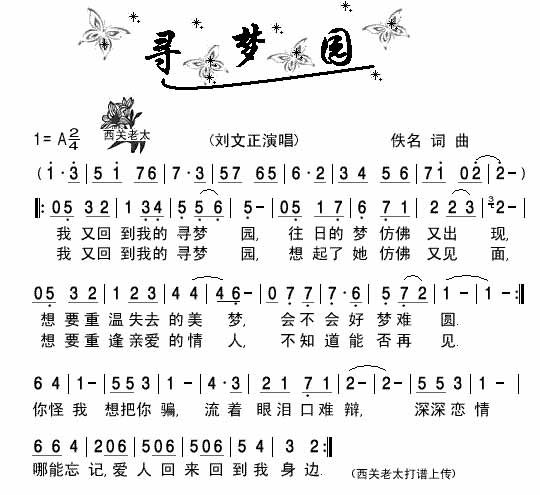 寻梦园
西关老太
1=A 2/4 (刘文正演唱) 佚名 词 曲
(1·3|51 76|7·3|57 65|6·2|34 56|71 02|2-)
‖:05 32|1 34|5 56|5-|05 17|6 71|2 23|3 2-|
我 又回 到我的 寻梦 园, 往 日的 梦 仿佛 又出 现,
我 又回 到我的 寻梦 园, 想 起了 她 仿佛 又见 面,
05 32|1 23|44|46-|077|7·6|572|1-|1-:‖
想 要重 温失去 的美 梦, 会不 会好 梦难 圆.
想 要重 逢亲爱 的情 人, 不知 道能 否再 见.
64|1-|553|1-|4·3|21 71|2-|2-|553|51|
你怪 我 想把你 骗, 流着 眼泪 口难 辩, 深深恋 情
664|206|506|506|54|32:‖
哪能忘 记,爱 人回 来回 到我 身边.
(西关老太打谱上传)